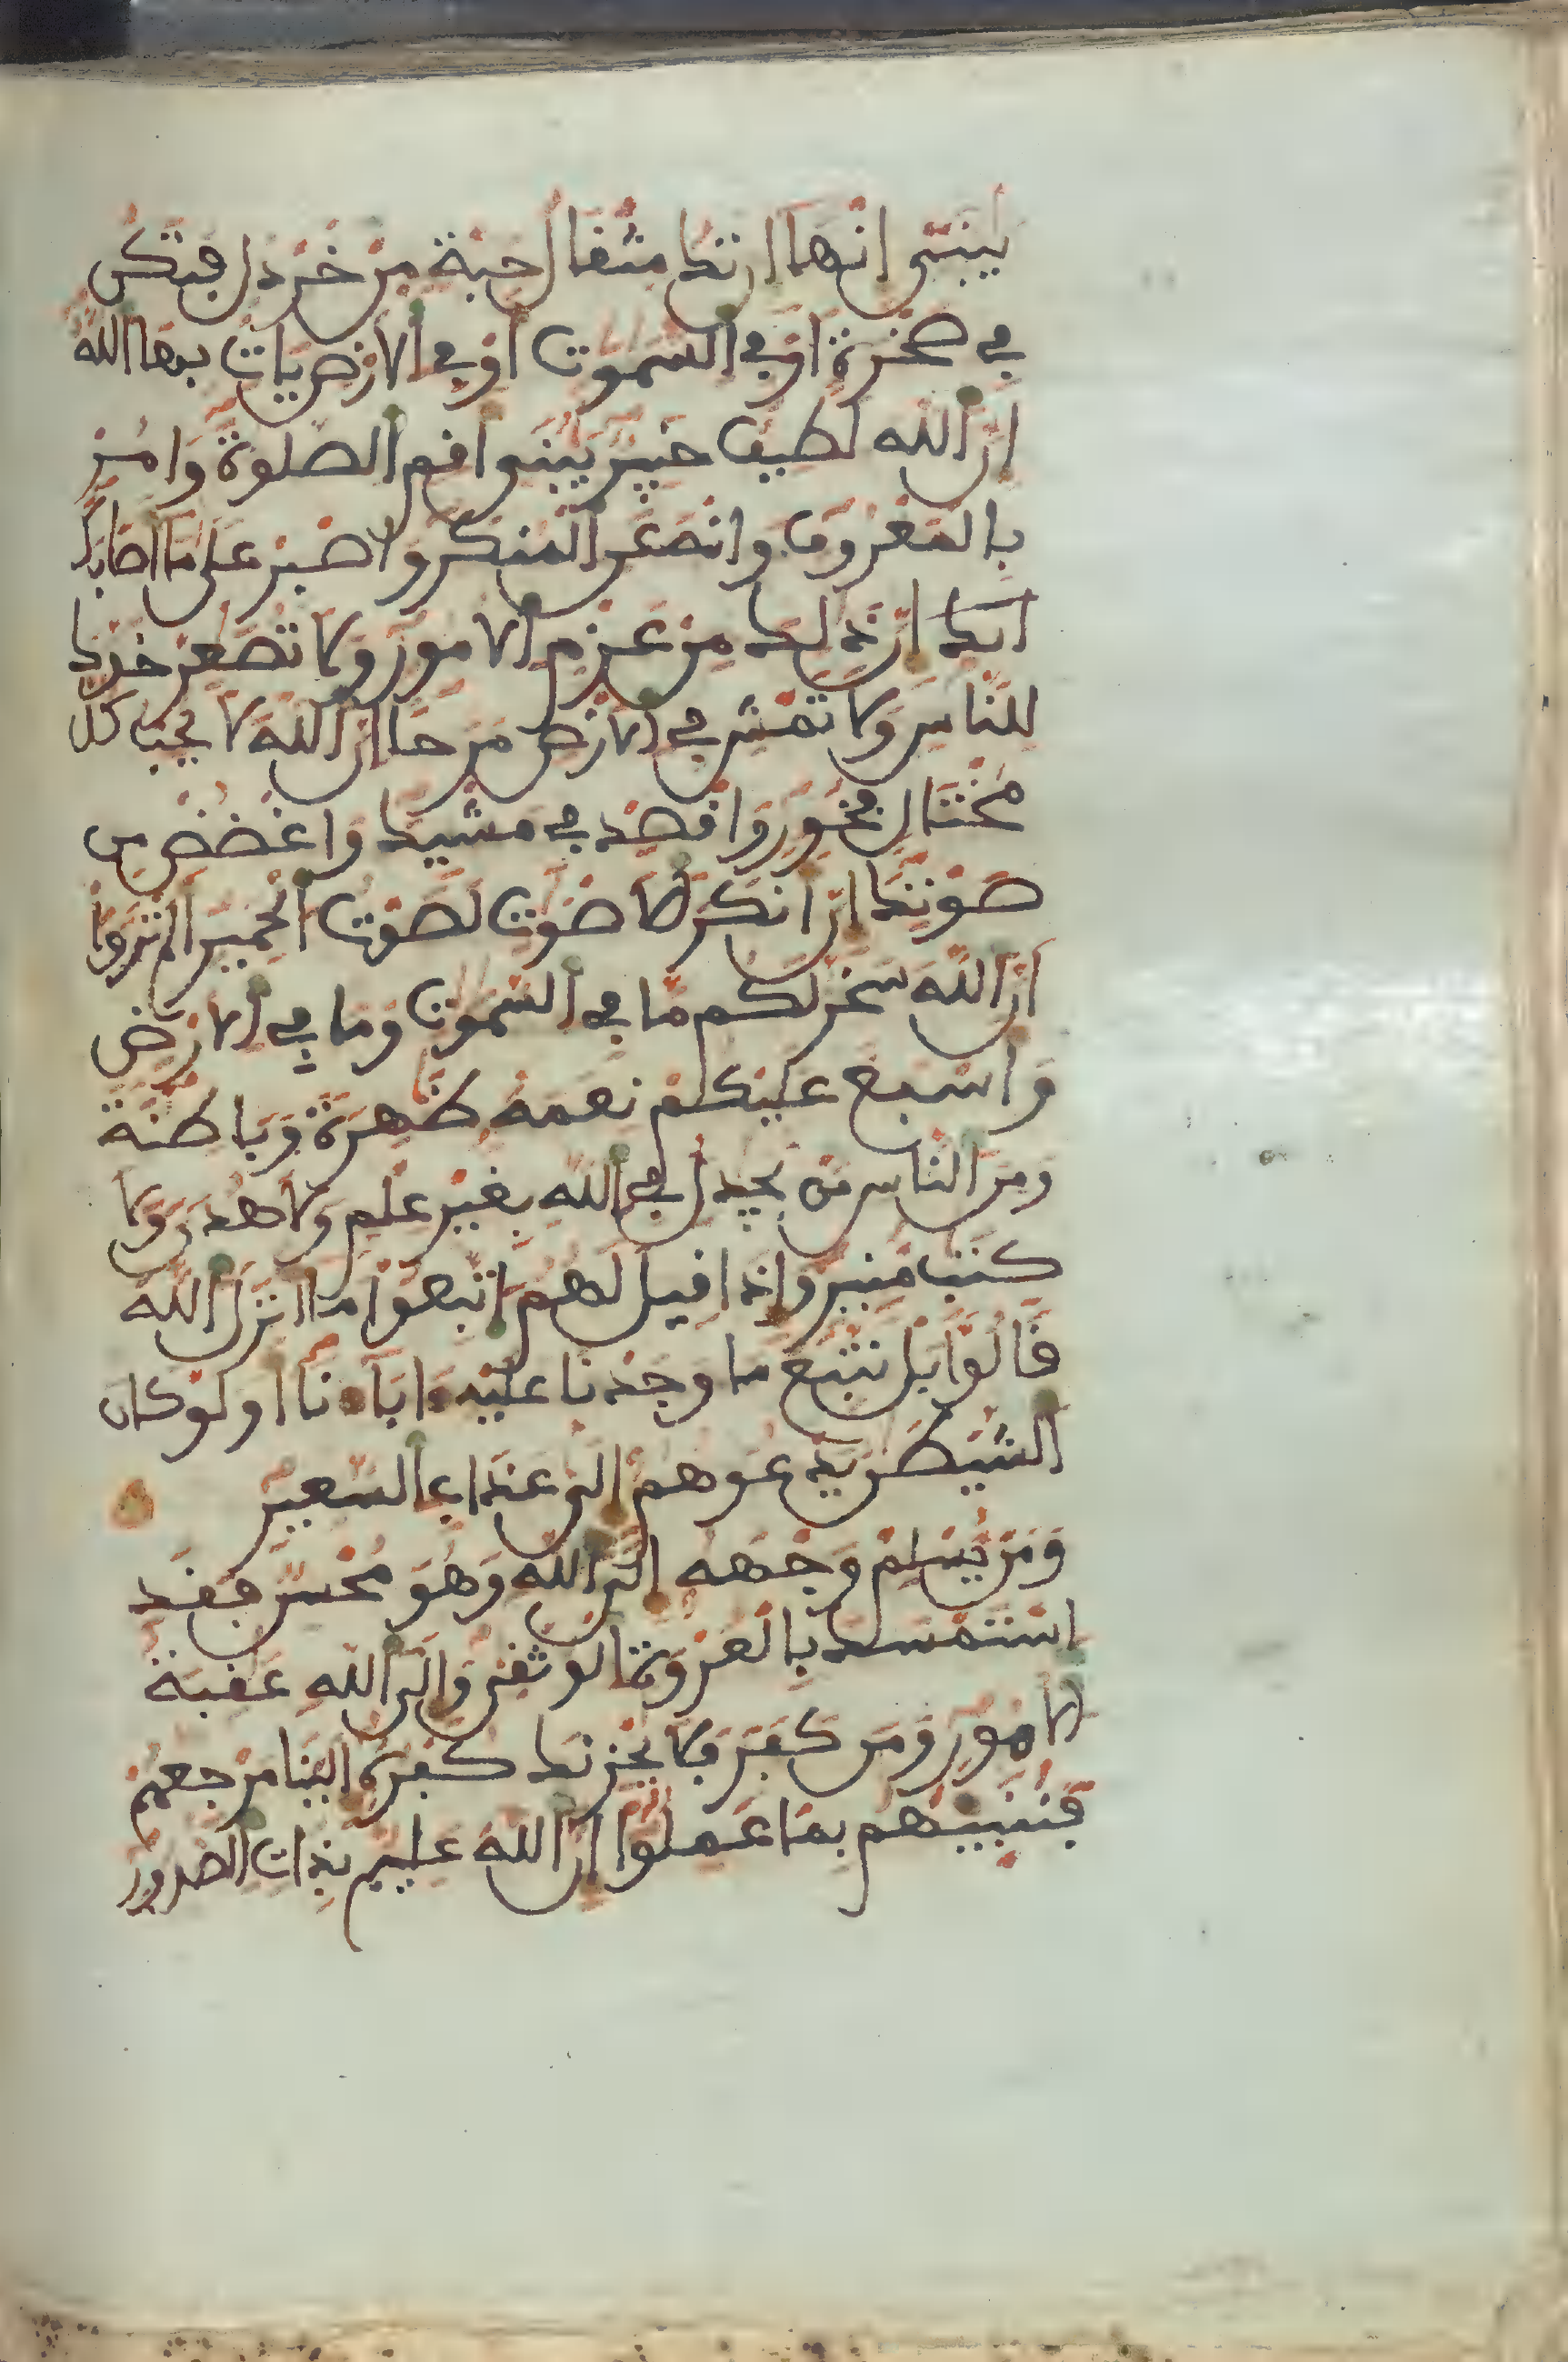 يبنى انها ان تك مثقال حبة من خردل فتكن
في صخرة او في السموت او في الارض يات بها الله
ان الله لطيف خبير يبنى اقم الصلوة وامر
بالمعروف وانه عن المنكر واصبر على ما اصابك
ان ذلك من عزم الامور ولا تصعر خدك
للناس ولا تمش في الارض مرحا ان الله لا يحب كل
مختال فخور واقصد في مشيك واغضض من
صوتك ان انكر الاصوت لصوت الحمير الم تروا
ان الله سخر لكم ما في السموت وما في الارض
واسبغ عليكم نعمه ظهرة وباطنة
ومن الناس من يجدل في الله بغير علم ولا هدى ولا
كتب منير واذا قيل لهم اتبعوا ما انزل الله
قالوا بل نتبع ما وجدنا عليه ءاباءنا اولو كان
الشيطن يدعوهم الى عذاب السعير
ومن يسلم وجهه الى الله وهو محسن فقد
استمسك بالعروة الوثقى والى الله عقبة
الامور ومن كفر فلا يحزنك كفره الينا مرجعهم
فننبيهم بما عملوا ان الله عليم بذات الصدور